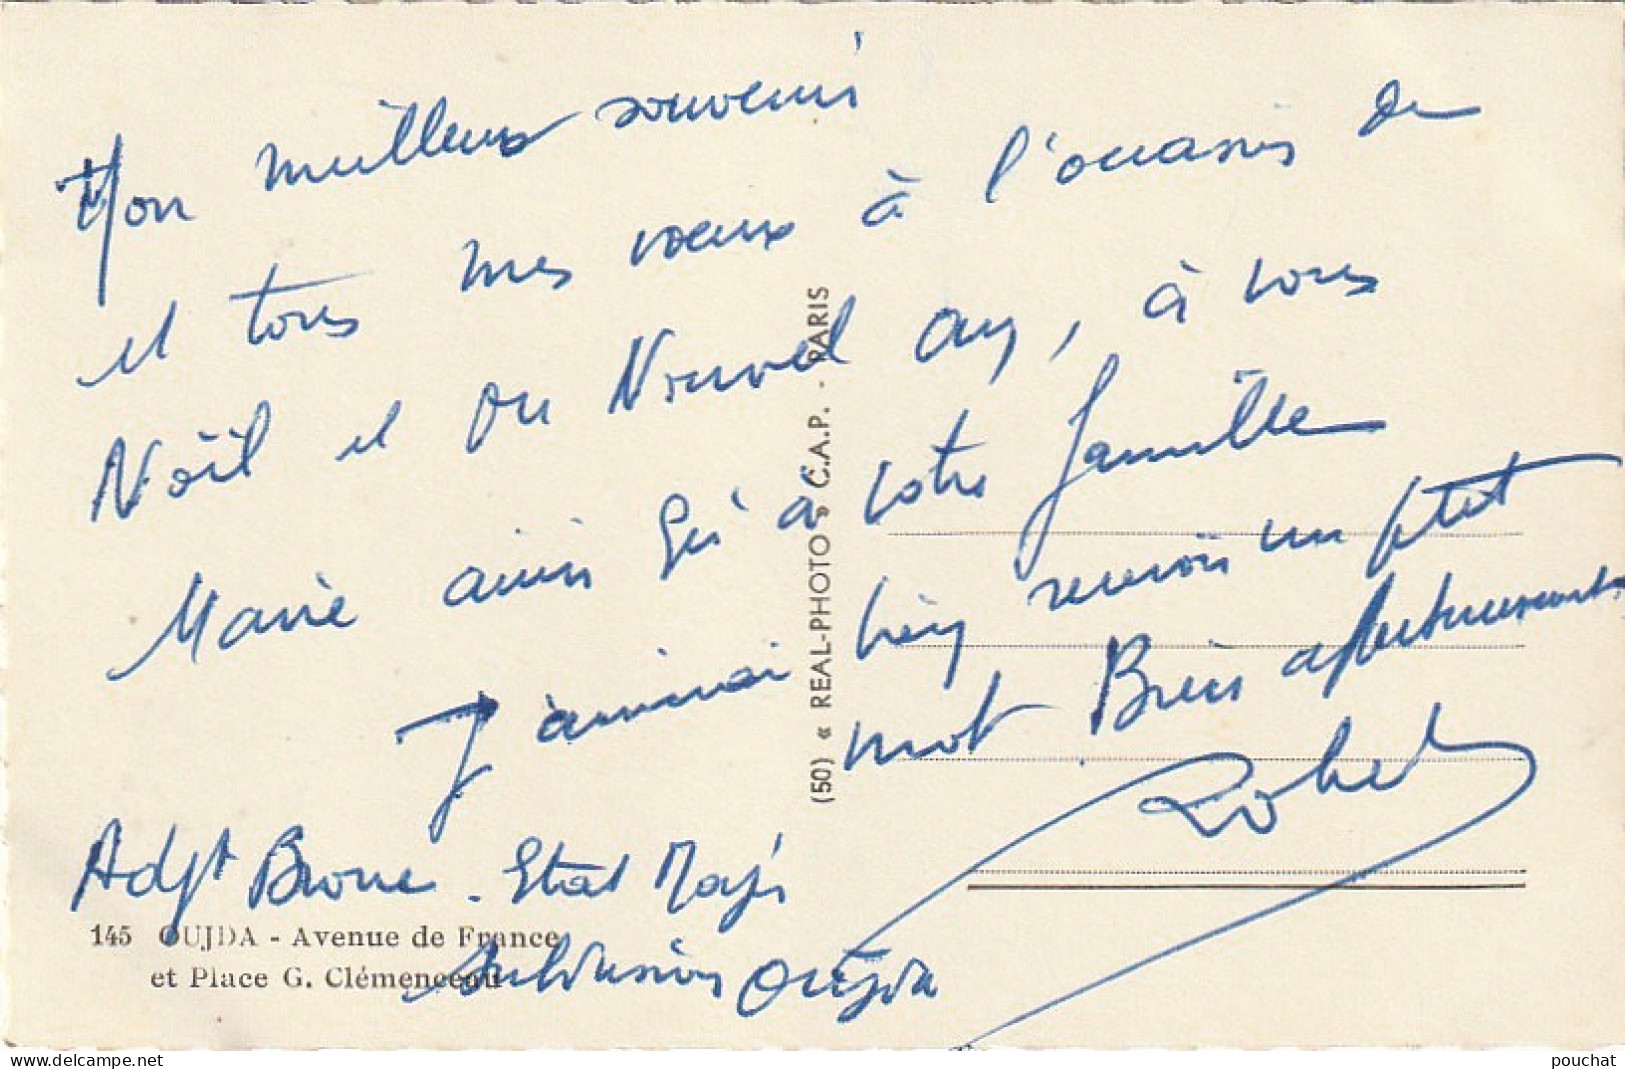 Mon meilleur souvenir
et tous mes voeux à l'occasion de
Noël et du Nouvel an, à vous
Marie ainsi qu'à votre famille
J'aimerai bien recevoir un ptit
mot Bien affectueusement
Robert
Adjt Brone - Etat Major
Subdivision Oujda
145 OUJDA - Avenue de France
et Place G. Clémenceau
(50) « REAL-PHOTO » C.A.P. - PARIS
www.delcampe.net
pouchat